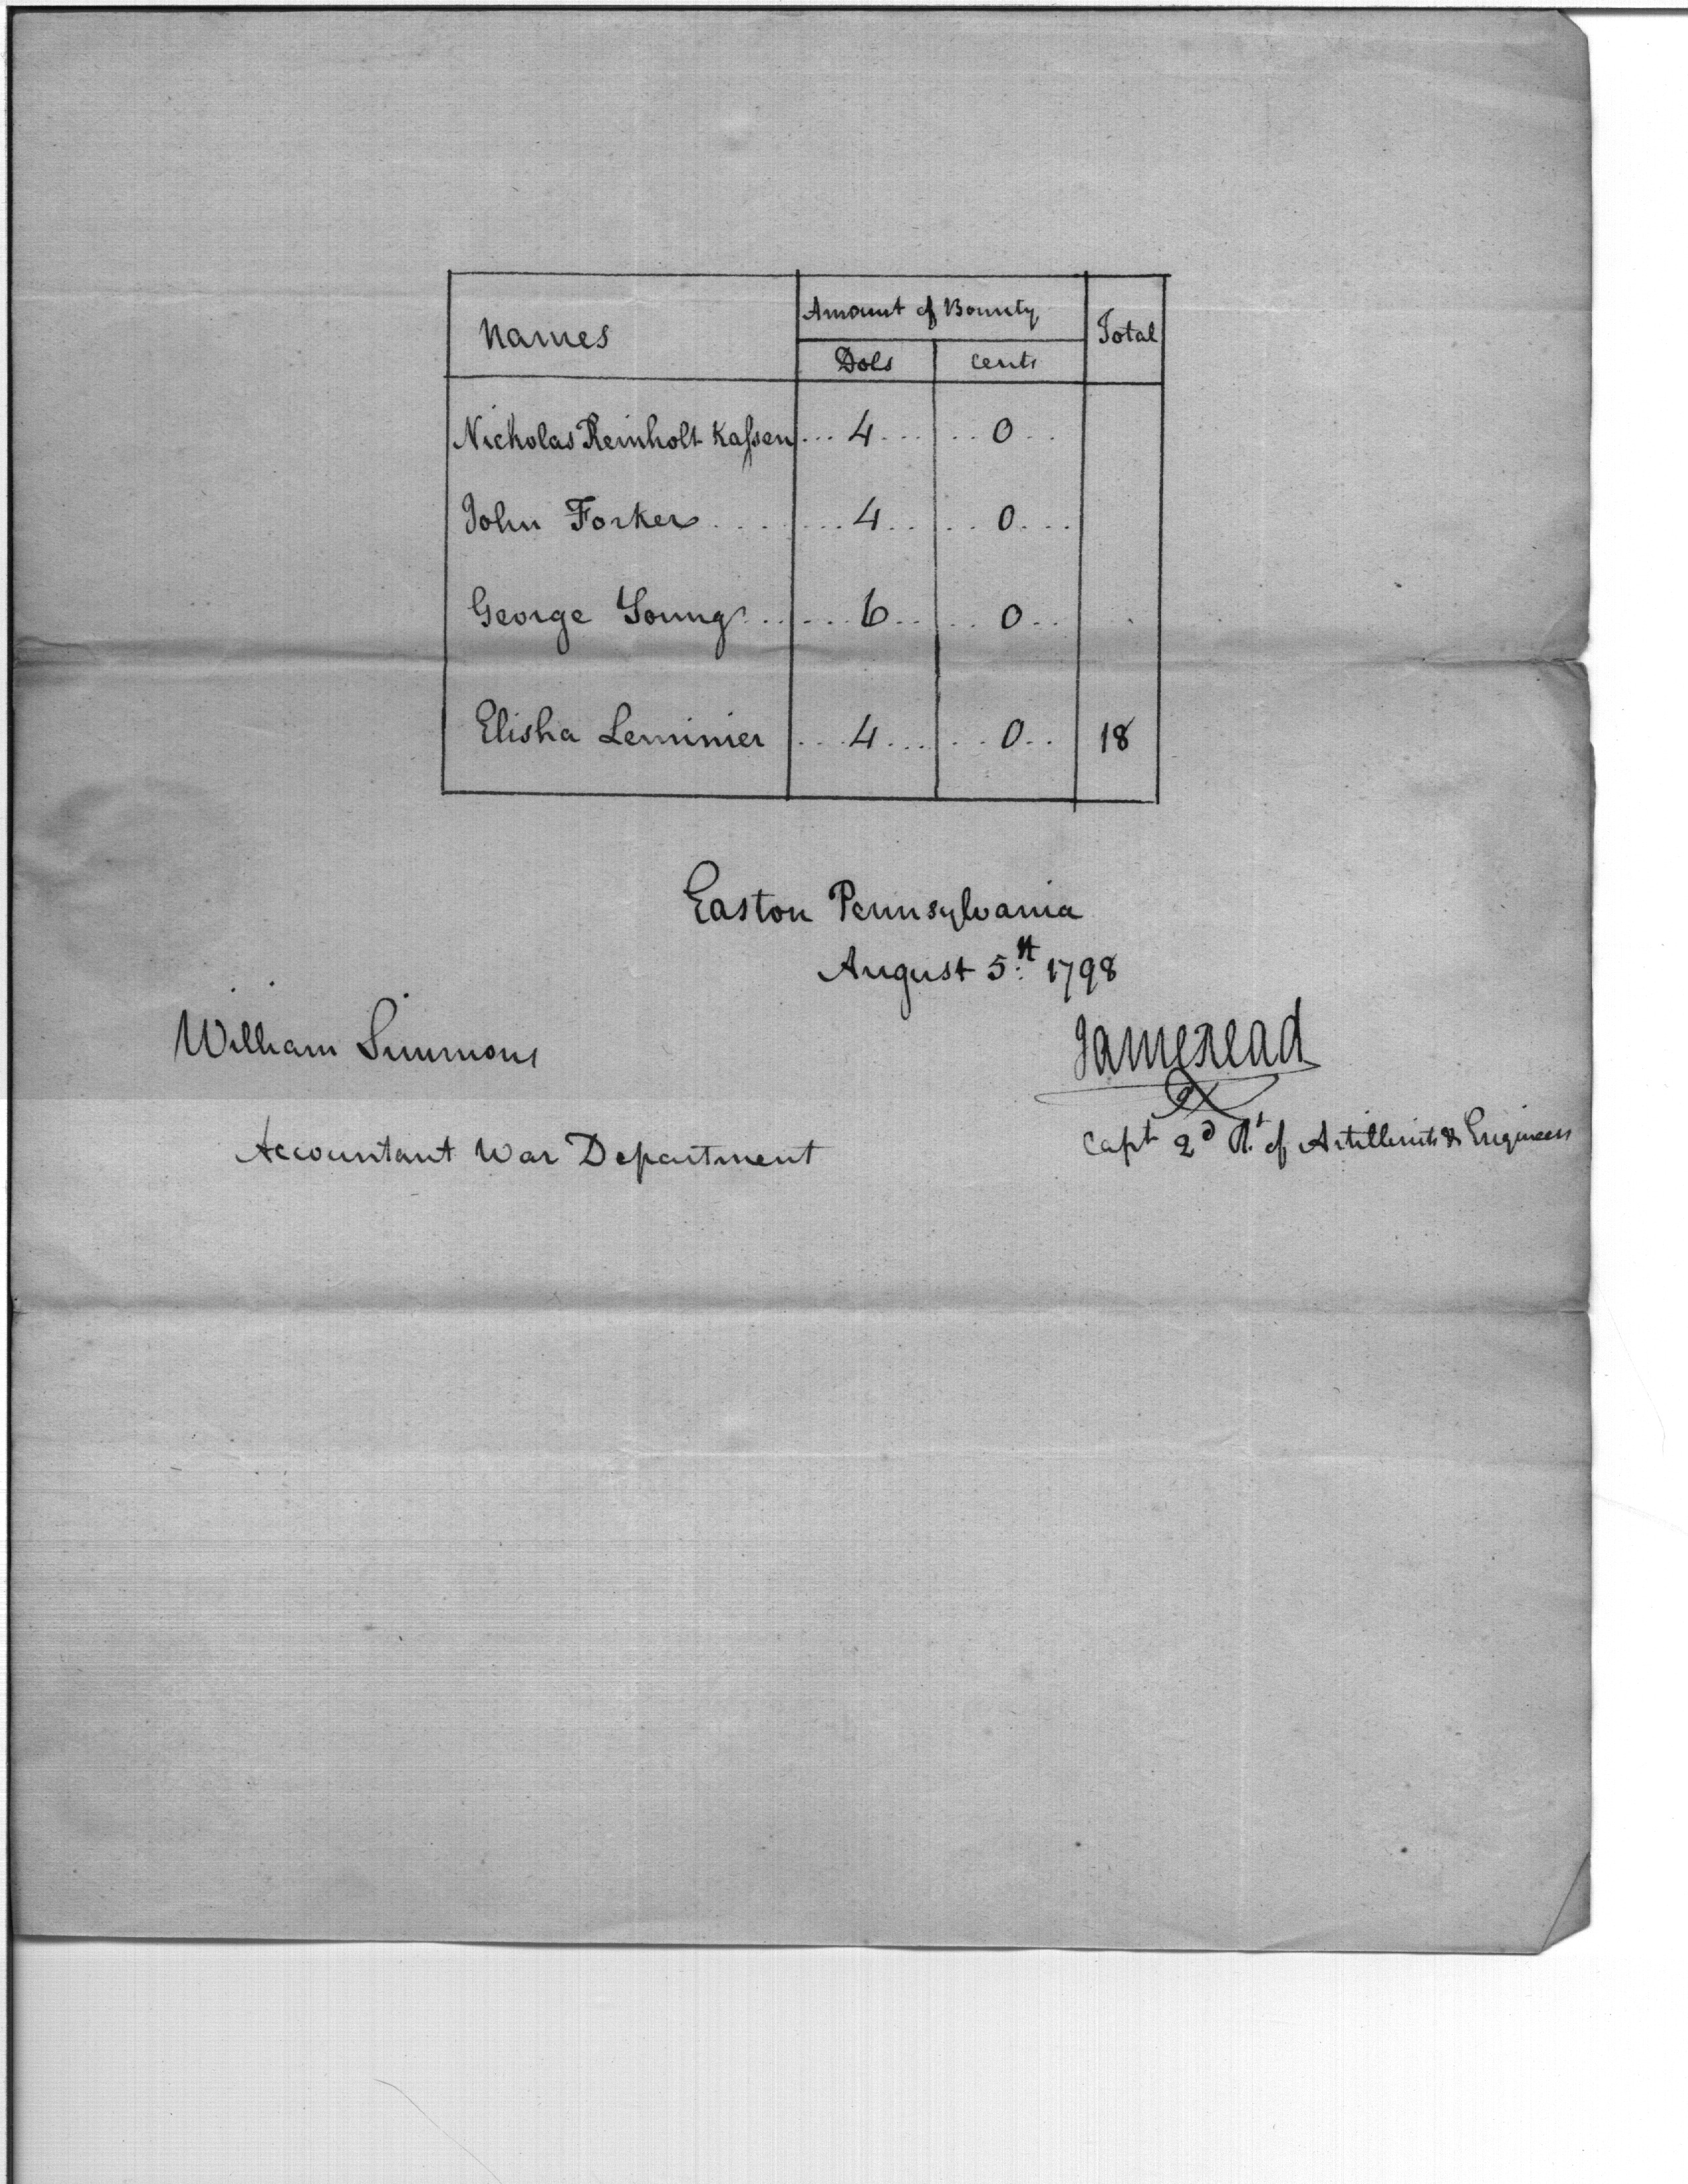 Names Amount of Bounty Total
Dols Cents
Nicholas Reinholt Kaſsen ... 4 ... .. 0 ..
John Forker .... ... 4 .. .. 0 ...
George Young ... ... 6 .. .. 0 ..
Elisha ... 4 ... .. 0 .. 18
Easton Pennsylvania
August 5th 1798
William Simmons
James Read
Accountant War Department
Capt 2d Rt. of Artillerists & Engineers